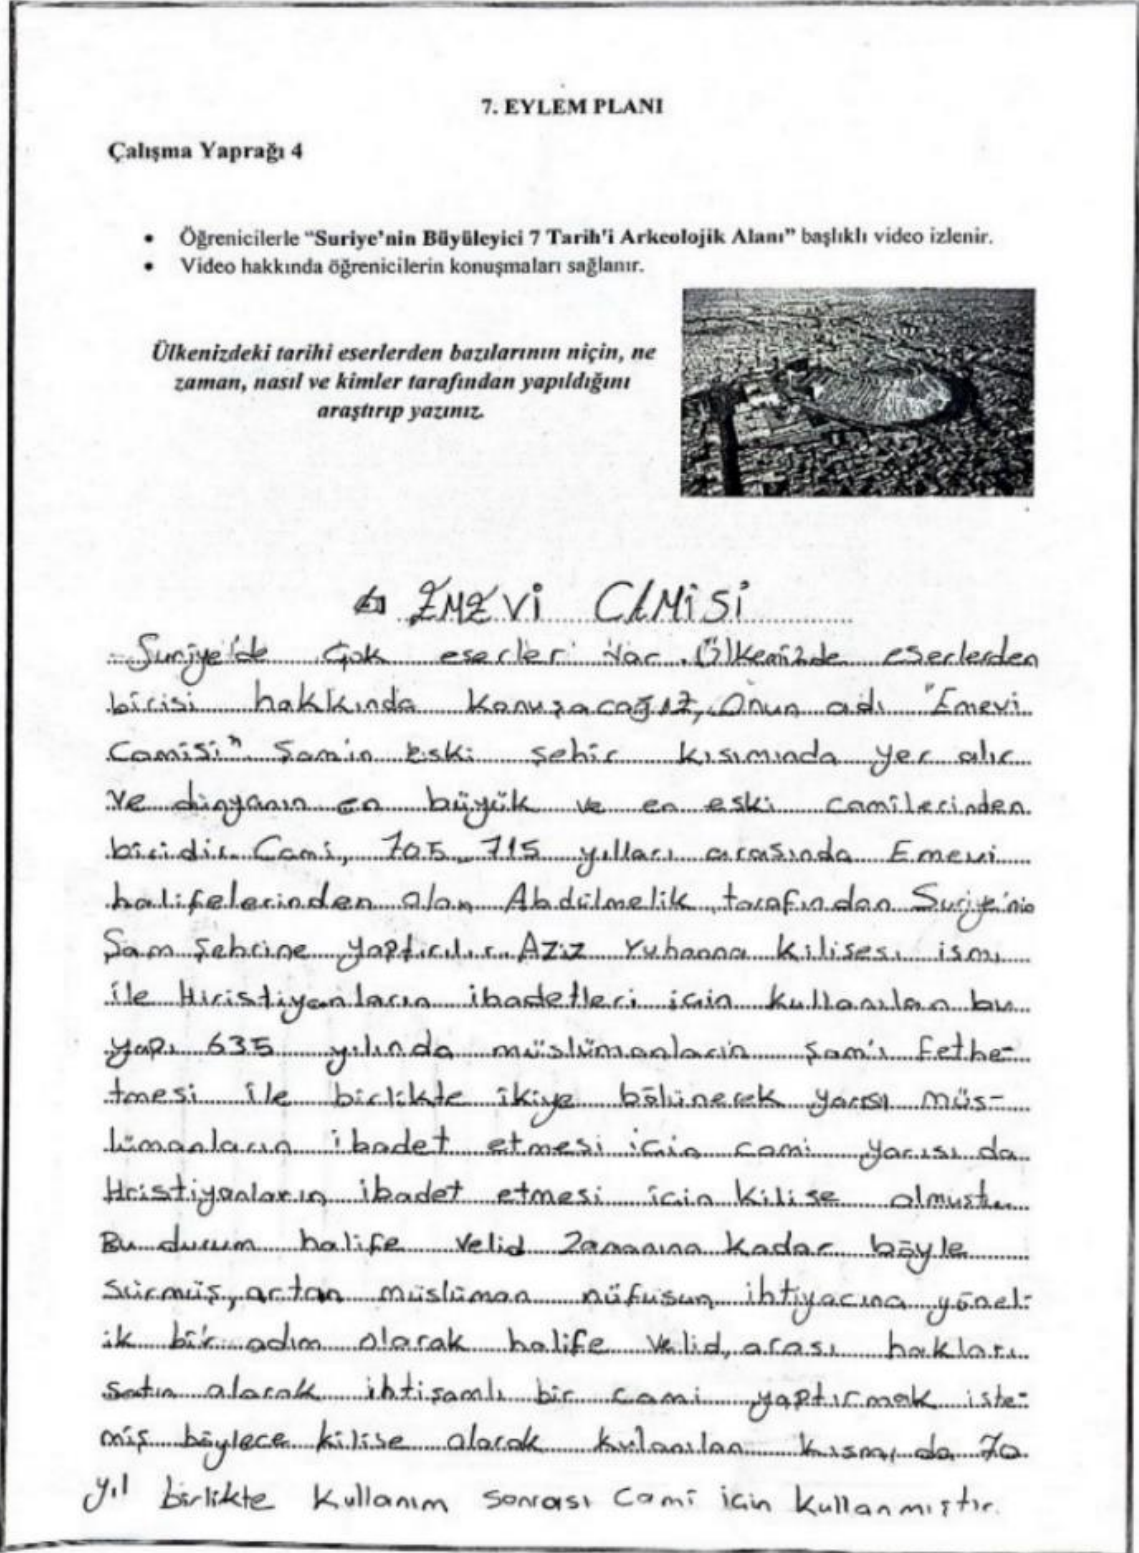 7. EYLEM PLANI
Çalışma Yaprağı 4
• Öğrenicilerle “Suriye’nin Büyüleyici 7 Tarih’i Arkeolojik Alanı” başlıklı video izlenir.
• Video hakkında öğrenicilerin konuşmaları sağlanır.
Ülkenizdeki tarihi eserlerden bazılarının niçin, ne
zaman, nasıl ve kimler tarafından yapıldığını
araştırıp yazınız.
EMEVİ CAMİSİ
Suriye'de çok eserler var. Ülkemizde eserlerden
birisi hakkında konuşacağız, Onun adı "Emevi
Camisi" Şam'ın eski şehir kısımında yer alır
ve dünyanın en büyük ve en eski camilerinden
biridir. Cami, 705-715 yılları arasında Emevi
halifelerinden olan Abdülmelik tarafından Suriye'nin
Şam şehrine yaptırılır. Aziz Yuhanna kilisesi ismi
ile Hiristiyanların ibadetleri için kullanılan bu
yapı 635 yılında müslümanların Şam'ı fethe-
tmesi ile birlikte ikiye bölünerek yarısı müs-
lümanların ibadet etmesi için cami yarısı da
Hristiyanların ibadet etmesi için kilise olmuştu.
Bu durum halife Velid zamanına kadar böyle
sürmüş, artan müslüman nüfusun ihtiyacına yönel-
ik bir adım olarak halife Velid, arası hakları
satın alarak ihtişamlı bir cami yaptırmak iste-
miş böylece kilise olarak kulanılan kısmı da 70
yıl birlikte kullanım sonrası cami için kullanmıştır.